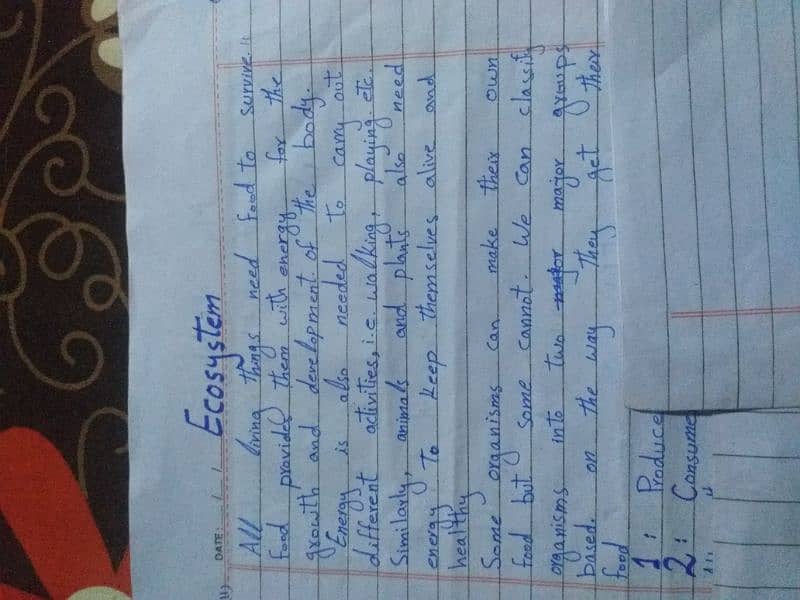 DATE: / /
Ecosystem
All living things need food to survive.
Food provides them with energy for the
growth and development of the body.
Energy is also needed to carry out
different activities, i.e. walking, playing etc.
Similarly, animals and plants also need
energy to keep themselves alive and
healthy
Some organisms can make their own
food but some cannot. We can classify
organisms into two major groups
based on the way they get their
food
1: Produce
2: Consume